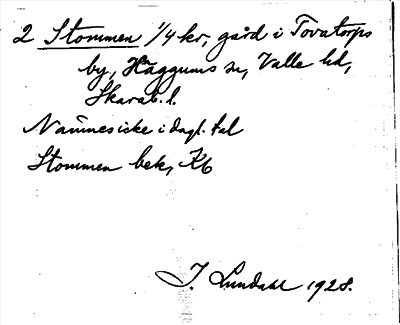 2 Stommen 1/4 kr, gård i Tovatorps
by, Häggums sn, Valle hd,
Skarab. l.
Namnes icke i dagl. tal
Stommen bek, Kb
J. Lundahl 1928.